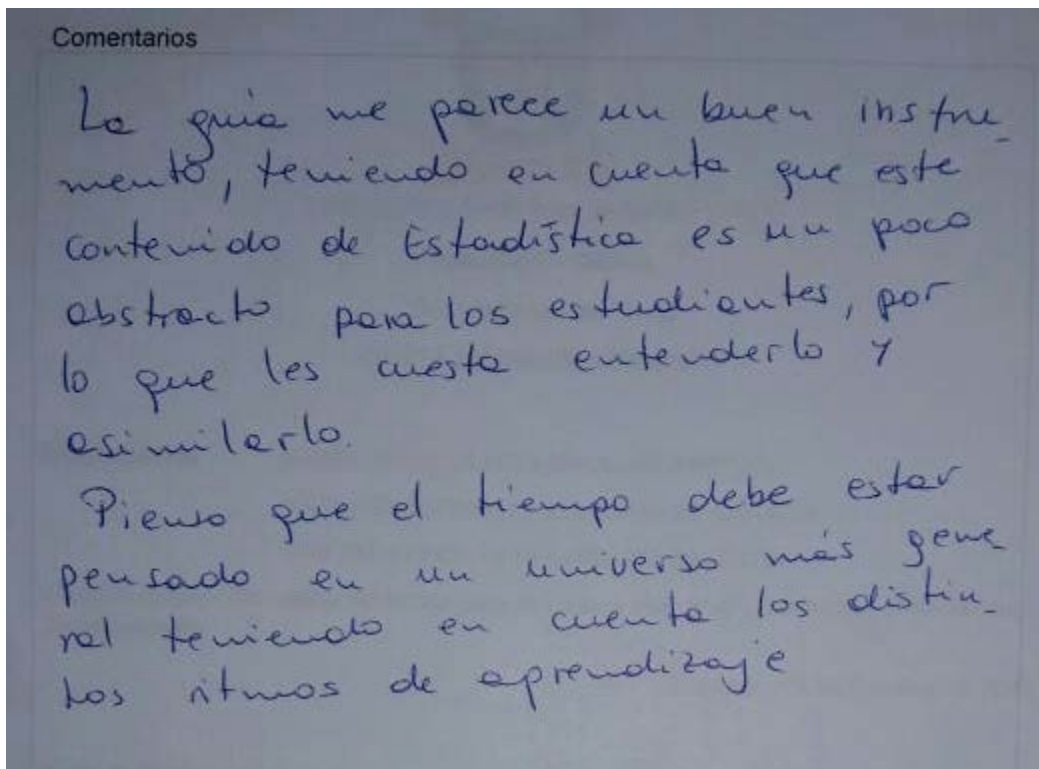 Comentarios
La guia me parece un buen instru_
mento, teniendo en cuenta que este
contenido de Estadística es un poco
abstracto para los estudiantes, por
lo que les cuesta entenderlo y
asimilarlo.
Pienso que el tiempo debe estar
pensado en un universo más gene_
ral teniendo en cuenta los distin_
tos ritmos de aprendizaje